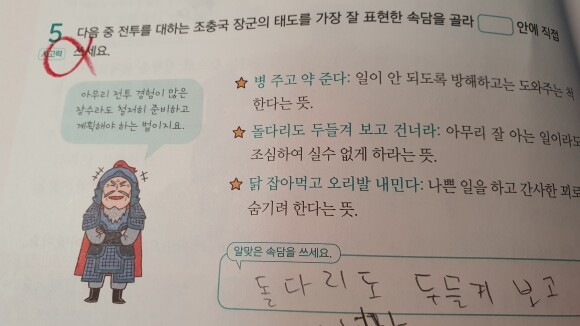 5 다음 중 전투를 대하는 조충국 장군의 태도를 가장 잘 표현한 속담을 골라 안에 직접
사고력 쓰세요.
아무리 전투 경험이 많은
장수라도 철저히 준비하고
계획해야 하는 법이지요.
병 주고 약 준다: 일이 안 되도록 방해하고는 도와주는 척
한다는 뜻.
돌다리도 두들겨 보고 건너라: 아무리 잘 아는 일이라도
조심하여 실수 없게 하라는 뜻.
닭 잡아먹고 오리발 내민다: 나쁜 일을 하고 간사한 꾀로
숨기려 한다는 뜻.
알맞은 속담을 쓰세요.
돌다리도 두들겨 보고